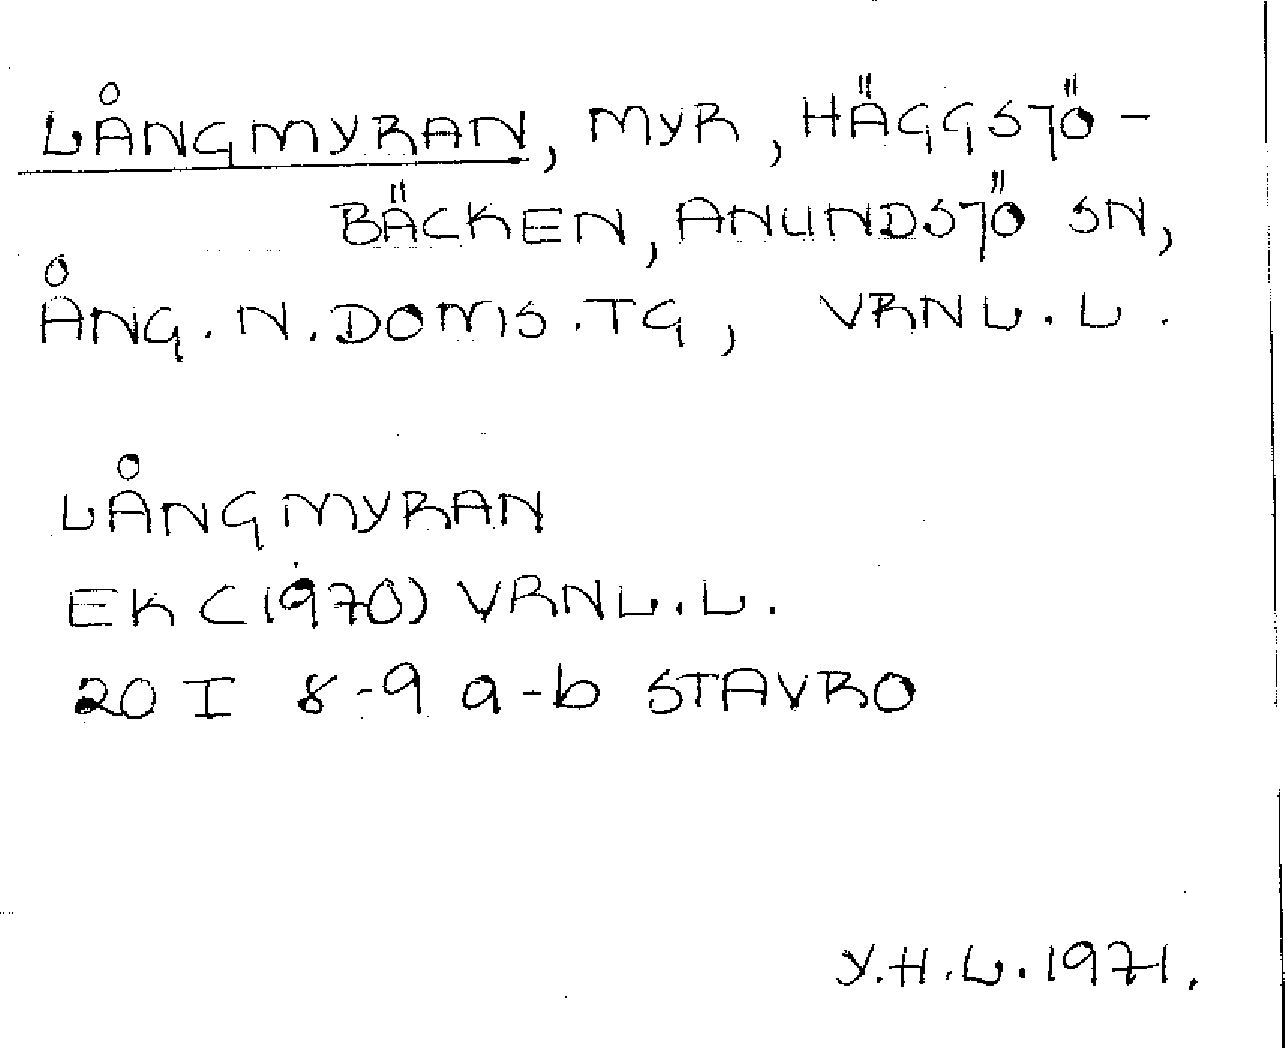 LÅNGMYRAN, MYR, HÄGGSJÖ-
BÄCKEN, ANUNDSJÖ SN,
ÅNG. N. DOMS. TG, VRNL. L.
LÅNGMYRAN
EK (1970) VRNL. L.
20 I 8-9 a-b STAVRO
Y.H.L. 1971.